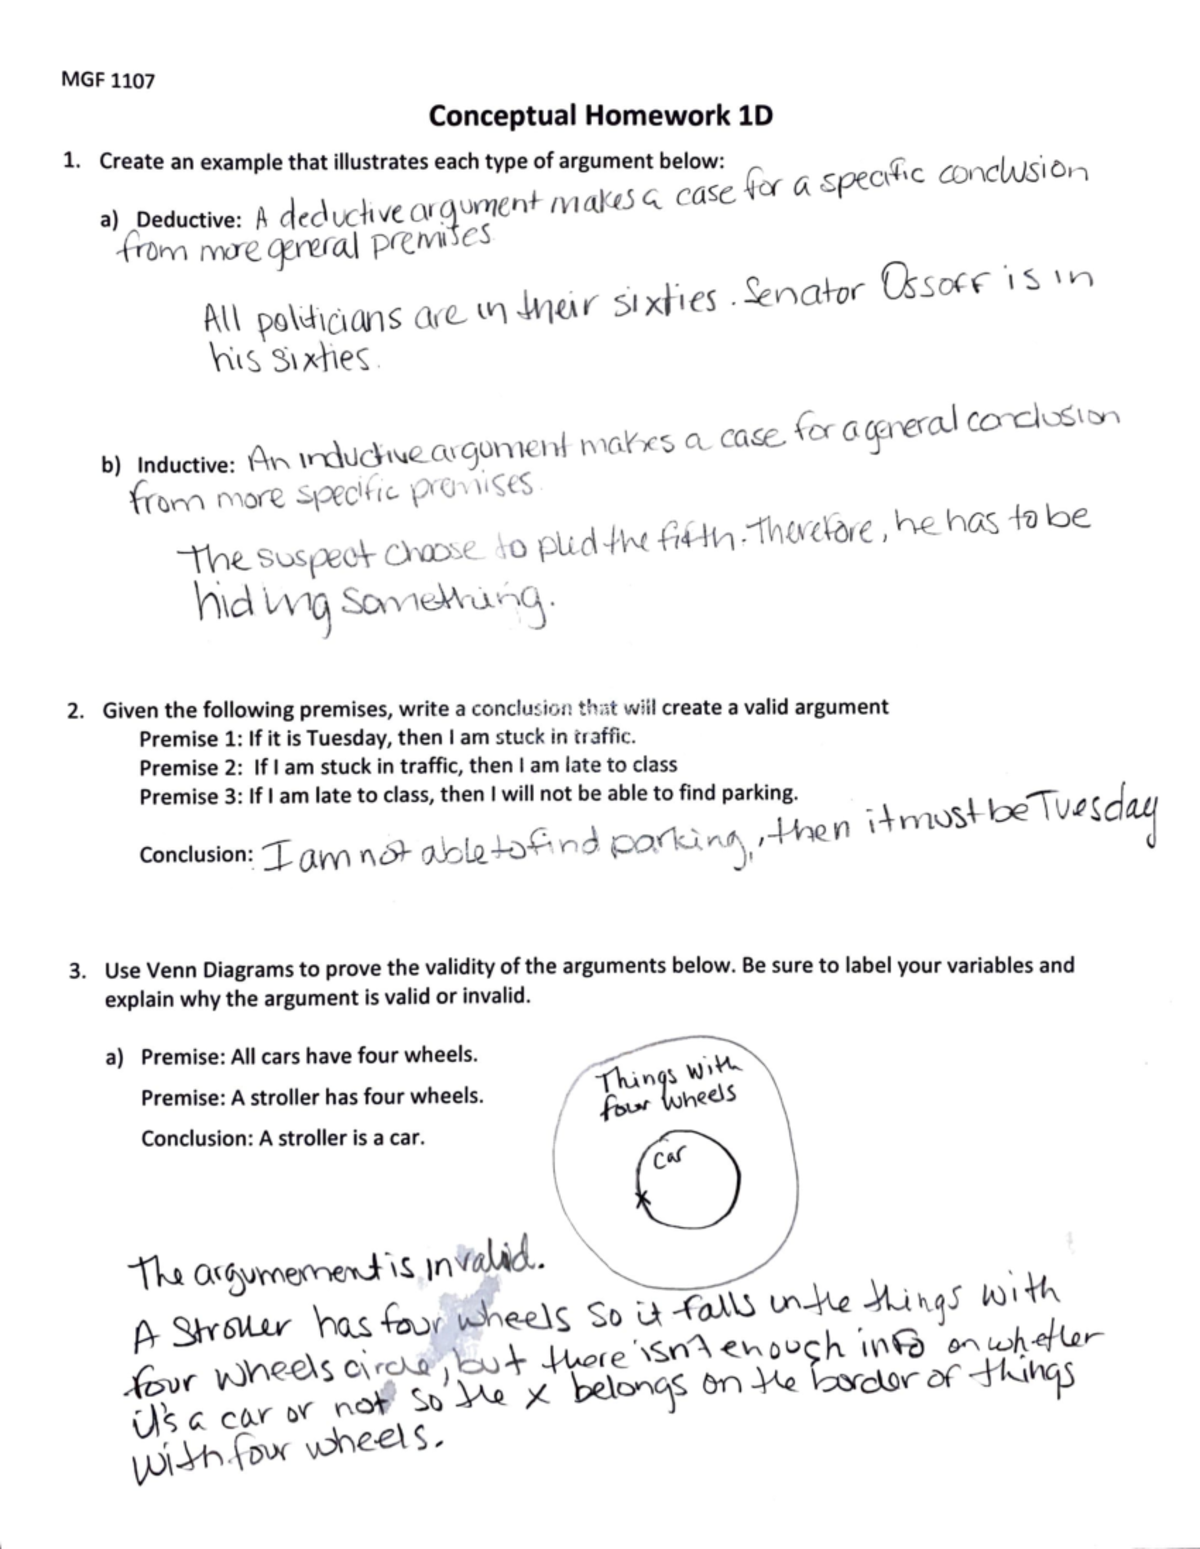 MGF 1107
Conceptual Homework 1D
1. Create an example that illustrates each type of argument below:
a) Deductive: A deductive argument makes a case for a specific conclusion
from more general premises
All politicians are in their sixties. Senator Ossoff is in
his sixties.
b) Inductive: An inductive argument makes a case for a general conclusion
from more specific premises.
The suspect choose to pled the fifth. Therefore, he has to be
hiding something.
2. Given the following premises, write a conclusion that will create a valid argument
Premise 1: If it is Tuesday, then I am stuck in traffic.
Premise 2: If I am stuck in traffic, then I am late to class
Premise 3: If I am late to class, then I will not be able to find parking.
Conclusion: I am not able to find parking, then it must be Tuesday
3. Use Venn Diagrams to prove the validity of the arguments below. Be sure to label your variables and
explain why the argument is valid or invalid.
a) Premise: All cars have four wheels.
Premise: A stroller has four wheels.
Conclusion: A stroller is a car.
Things with
four wheels
car
x
The argumement is invalid.
A Stroller has four wheels so it falls in the things with
four wheels circle, but there isn't enough info on whether
it's a car or not so the x belongs on the border of things
with four wheels.